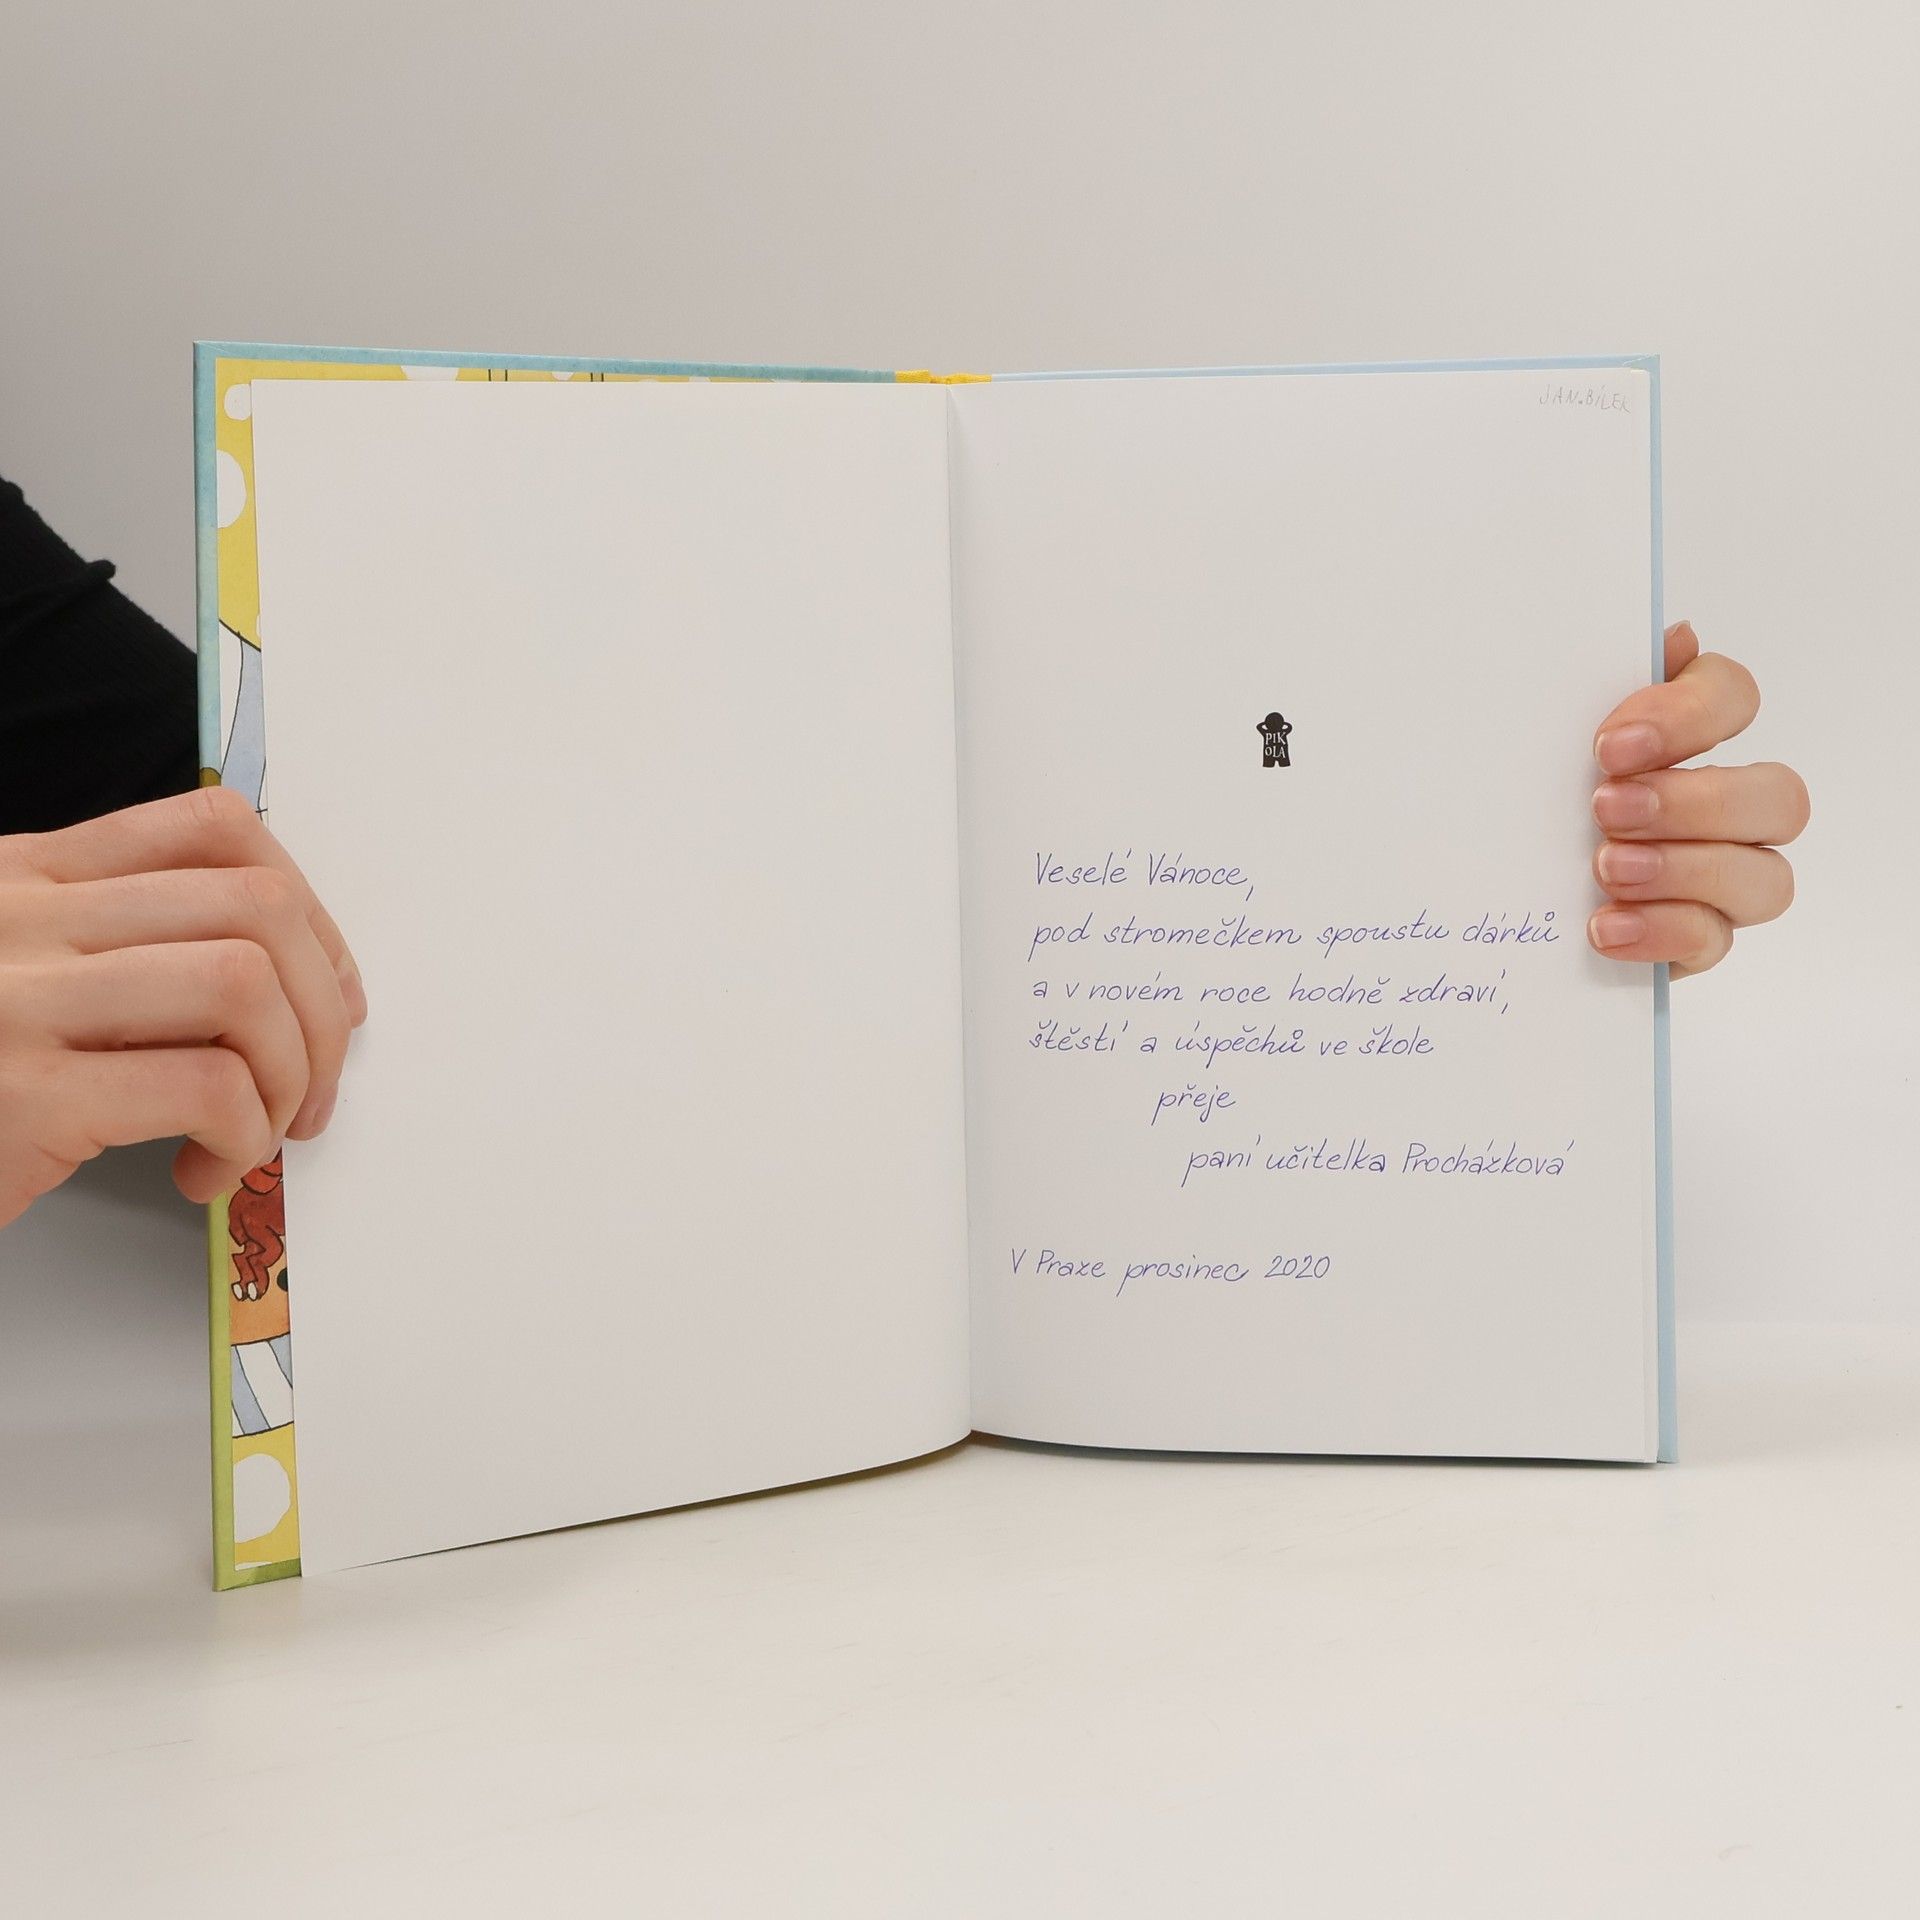 JAN.BÍLEK
PIK
OLA
Veselé Vánoce,
pod stromečkem spoustu dárků
a v novém roce hodně zdraví,
štěstí a úspěchů ve škole
přeje
paní učitelka Procházková
V Praze prosinec 2020